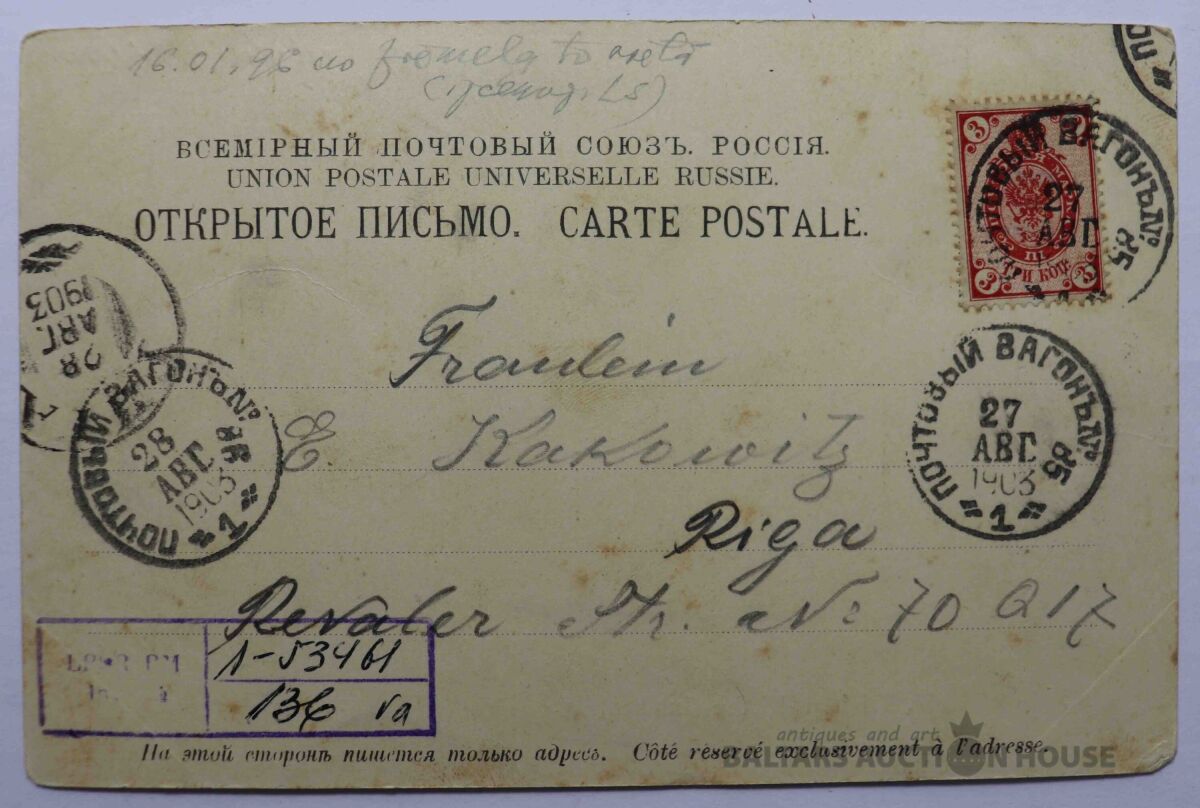 16.01.96 no
ВСЕМІРНЫЙ ПОЧТОВЫЙ СОЮЗЪ. РОССІЯ.
UNION POSTALE UNIVERSELLE RUSSIE.
ОТКРЫТОЕ ПИСЬМО. CARTE POSTALE.
3 3
ТРИ КОП.
3 3
ПОЧТОВЫЙ ВАГОНЪ №
27
АВГ
85
28
АВГ.
1903
Fraulein
E. Kakowitz
Riga
Revaler Str. No 70 Q 17
ПОЧТОВЫЙ ВАГОНЪ №
28
АВГ
1903
1
ПОЧТОВЫЙ ВАГОНЪ № 85
27
АВГ
1903
1
1-53461
136 va
На этой сторонѣ пишется только адресъ. Côté réservé exclusivement à l'adresse.
antiques and art
BALTARS AUCTION HOUSE